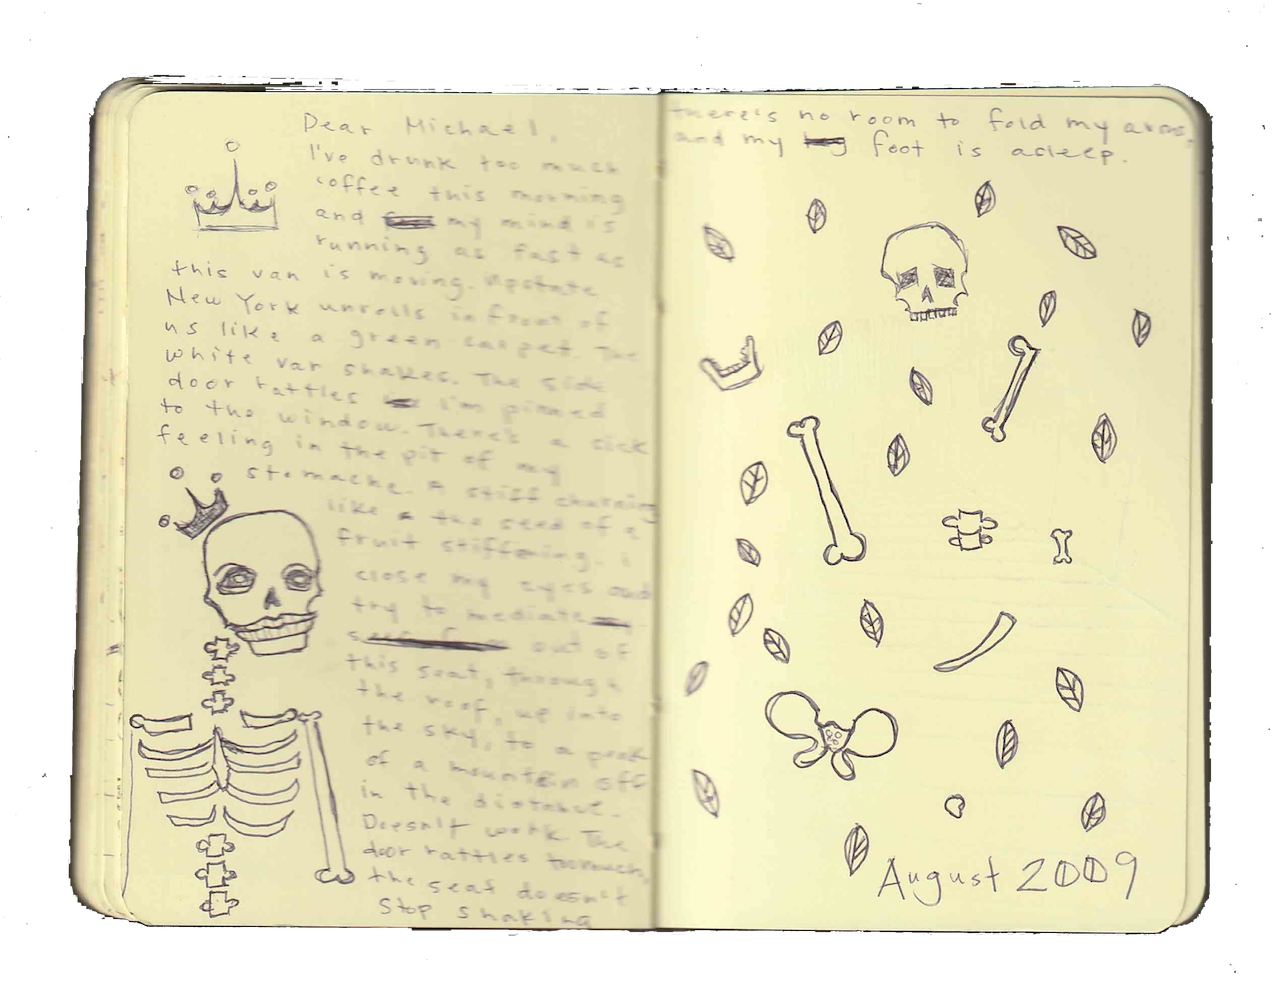 Dear Michael,
I've drunk too much
coffee this morning
and my mind is
running as fast as
this van is moving. Upstate
New York unrolls in front of
us like a green carpet. The
white van shakes. The side
door rattles I'm pinned
to the window. There's a sick
feeling in the pit of my
stomache. A stiff churning
like the seed of a
fruit stiffening. i
close my eyes and
try to mediate
out of
this seat, through
the roof, up into
the sky, to a peak
of a mountain off
in the distance.
Doesn't work. The
door rattles too much,
the seat doesn't
stop shaking
there's no room to fold my arms,
and my foot is asleep.
August 2009